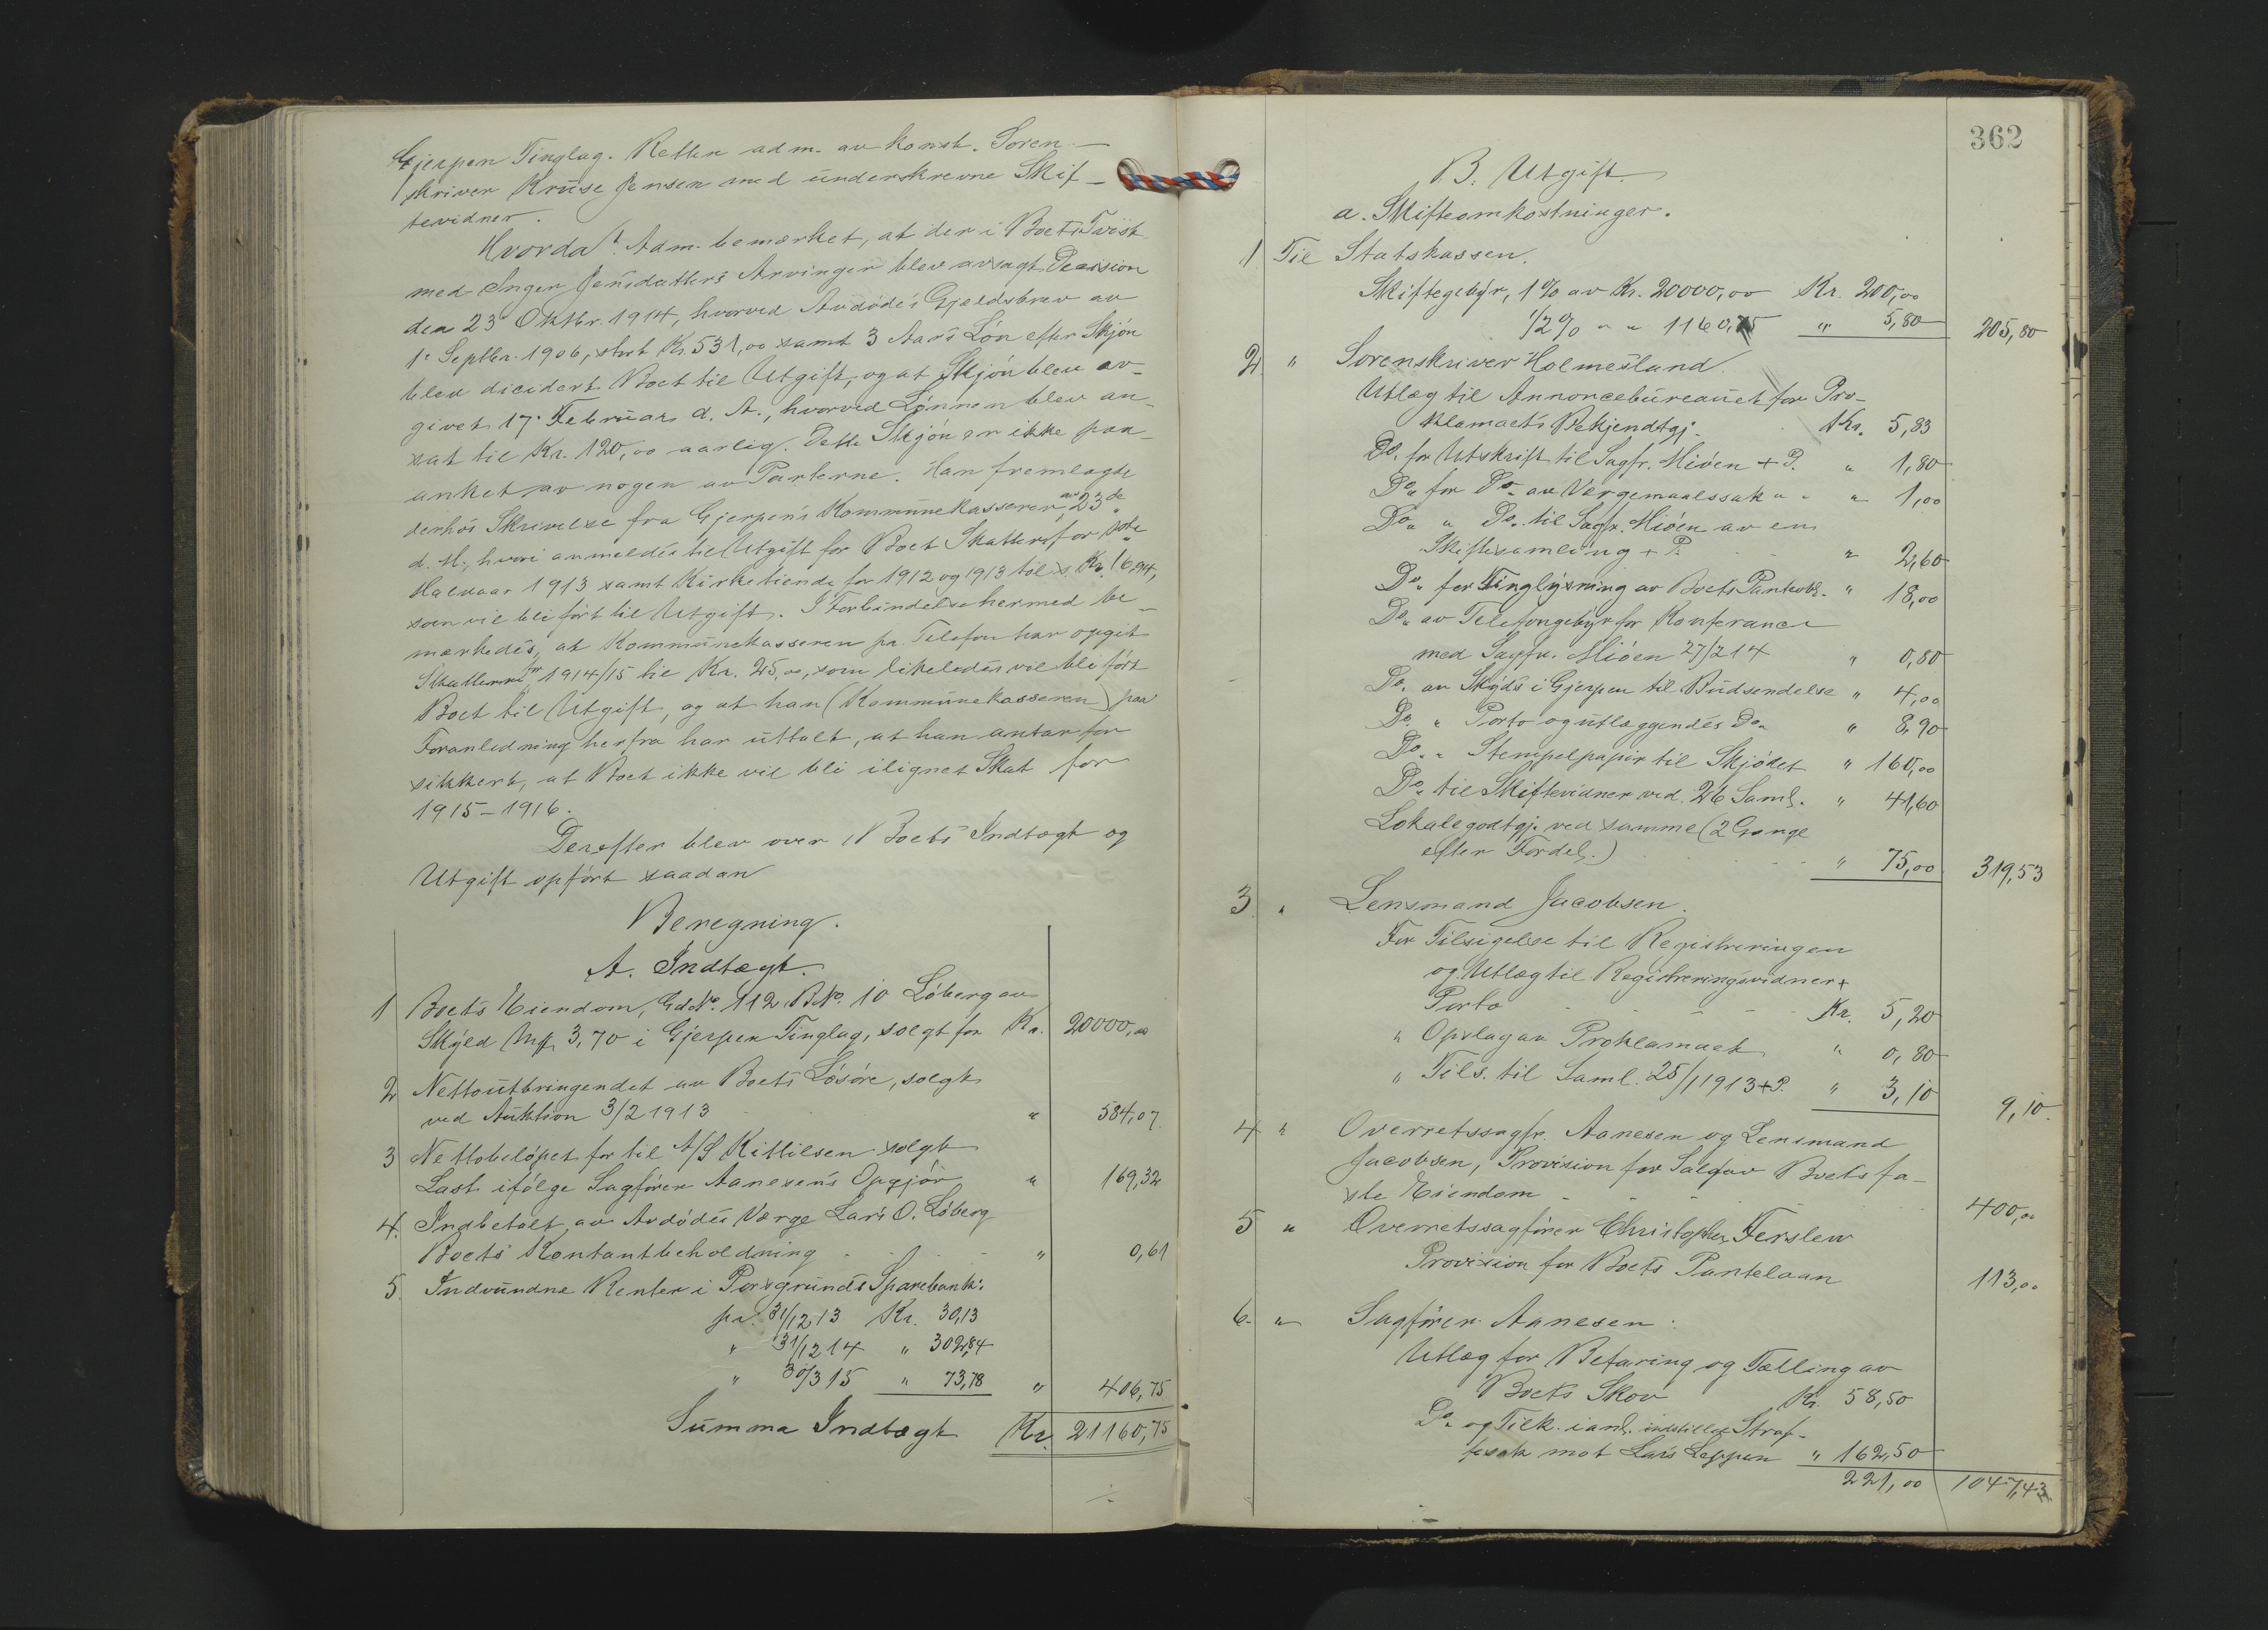 Gjerpen Tinglag. Retten adm. av konst. Soren-
skriver Kruse Jensen med underskrevne Skif-
tevidner.
Hvorda! Adm. bemærket, at der i Boets Tvist
med Inger Jensdatters Arvinger blev avsagt Decision
den 23. Oktbr. 1914, hvorved Avdødes Gjeldsbrev av
1. Septbr. 1906, stort Kr. 531,00 samt 3 Aars Løn efter Skjøn
blev decidert Boet til Utgift, og at Skjøn blev av-
givet 17. Februar d. A., hvorved Lønnen blev an-
sat til Kr. 120,00 aarlig. Dette Skjøn er ikke paa-
anket av nogen av Parterne. Han fremlagde
derhos Skrivelse fra Gjerpens Kommunekasserer av 23de
d. M., hvori anmeldes til Utgift for Boet Skatter for sidste
Halvaar 1913 samt Kirketiende for 1912 og 1913 tils. Kr. 16,94,
som vil bli ført til Utgift. I Forbindelse hermed be-
merkedes, at Kommunekasseren pr. Telefon har opgit
Skatterne for 1914/15 til Kr. 25,00, som likeledes vil bli ført
Boet til Utgift, og at han (Kommunekasseren) paa
Foranledning herfra har uttalt, at han antar for
sikkert, at Boet ikke vil bli ilignet Skat for
1915-1916.
Derefter blev over Boets Indtægt og
Utgift opført saadan
Beregning.
A. Indtægt.
1 Boets Eiendom, Gds№. 112 B№. 10 Løberg av
Skyld Mrk 3,70 i Gjerpen Tinglag, solgt for Kr. 20000,00
2 Nettoutbringendet av Boets Løsøre, solgt
ved Auktion 3/2 1913 " 584,07
3 Nettobeløpet for til A/S Kittilsen solgt
Last ifølge Sagfører Aanesens Opgjør " 169,32
4. Indbetalt av Avdødes Værge Lars O. Løberg
Boets Kontantbeholdning " 0,61
5. Indvundne Renter i Porsgrunds Sparebank:
pr. 31/12 13 Kr. 30,13
" 31/12 14 " 302,84
" 30/3 15 " 73,78 " 406,75
Summa Indtægt Kr. 21160,75
362
B. Utgift.
a. Skifteomkostninger.
1 Til Statskassen.
Skiftegebyr, 1% av Kr. 20000,00 Kr. 200,00
1/2% " " 1160,75 " 5,80 205,80
2 " Sorenskriver Holmesland.
Utlæg til Annoncebureauet for Pro-
klamaets Bekjendtgj. Kr. 5,83
Do. for Utskrift til Sagfr. Mióen + P. " 1,80
Do. for Do. av Værgemaalssak " " " 1,00
Do. " Do. til Sagfr. Mióen av en
Skiftesamling + P. " 2,60
Do. for Tinglysning av Boets Panteobl. " 18,00
Do. av Telefongebyr for Konferance
med Sagfr. Mióen 27/2 14 " 0,80
Do. av Skyds i Gjerpen til Budsendelse " 4,00
Do. " Porto og utlæggendes Do. " 8,90
Do. " Stempelpapir til Skjødet " 160,00
Do. til Skiftevidner ved 26 Saml. " 41,60
Lokalegodtgj. ved samme (2 Gange
efter Fordel.) " 75,00 319,53
3 " Lensmand Jacobsen.
For Tilsigelse til Registreringen
og Utlæg til Registreringsvidner +
Porto Kr. 5,20
" Opslag av Proklamaet " 0,80
" Tils. til Saml. 25/1 1913 + P. " 3,10 9,10
4 " Overretssagfr. Aanesen og Lensmand
Jacobsen, Provision for Salg av Boets fa-
ste Eiendom 400,00
5 " Overretssagfører Christopher Ferslew
Provision for Boets Pantelaan 113,00
6. " Sagfører Aanesen:
Utlæg for Befaring og Tælling av
Boets Skov Kr. 58,50
Do. og Tilk. i anl. indstillet Straf-
fesak mot Lars Leppen " 162,50
221,00 1047,43